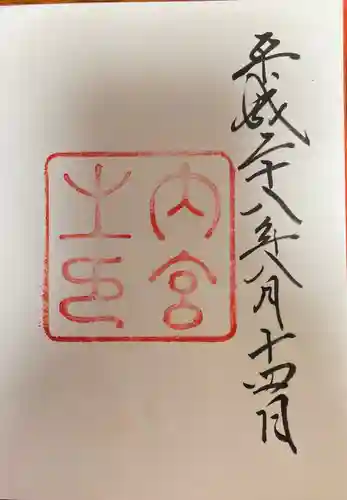 平成二十八年八月十四日
内宮
之印